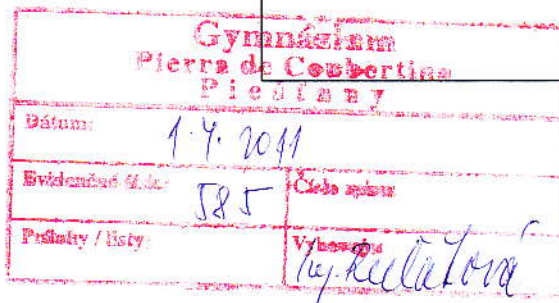 Gymnázium
Pierra de Coubertina
Piešťany
Dátum: 1.4.2011
Evidenčné č.: 585 Číslo spisu
Prílohy / listy: Vybavuje
Ing.